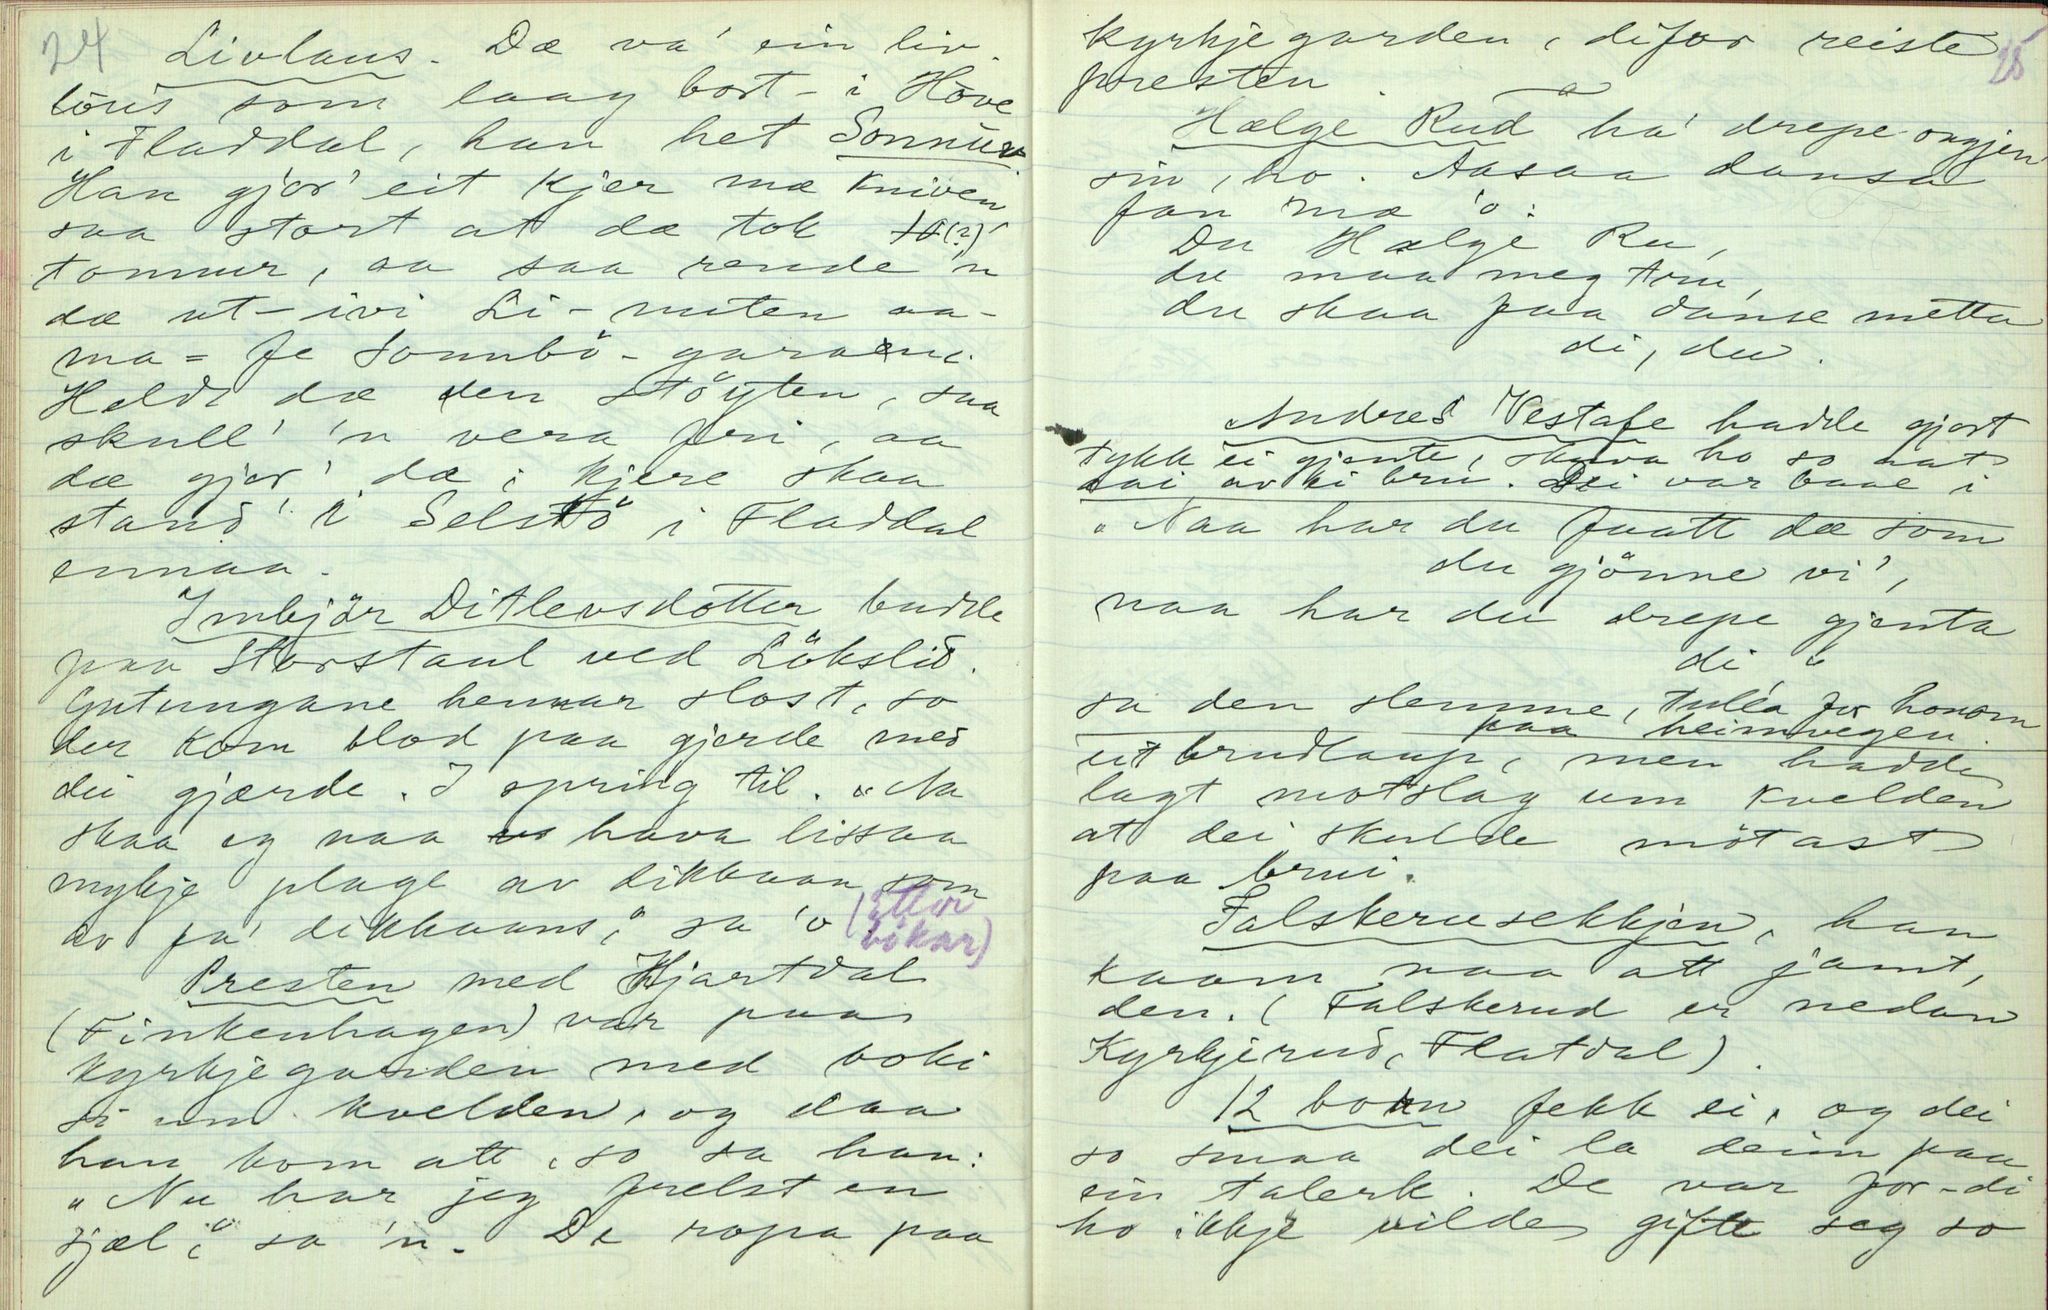 24
Livlaus. Dæ va' ein liv
löus som laag bort-i Höve
i Fladdal, han het Sonnüv
Han gjor' eit kjer mæ kniven
saa stort at dæ tok 18(?)
tonnur, aa saa rende 'n
dæ ut-ivi Li-nuten aa-
ma = fe Sonnbö-garane.
Heldt dæ den stöyten, saa
skull' 'n vera fri, aa
dæ gjor' dæ; kjere skaa
stand' i Selstö i Fladdal
ennaa.
Imbjör Ditlevsdotter budde
paa Storstaul ved Lökslid.
Gutungane hennar slost, so
der kom blod paa gjerde med
dei gjærde. I spring til. "No
skaa eg naa hava lissaa
mykje plage av dikkaan som
av fa' dikkaans," sa 'o (Etter
bökar)
Presten med Hjartdal
(Finkenhagen) var paa
kyrkjegarden med boki
si um kvelden, og daa
han kom att, so sa han:
"Nu har jeg frelst en
sjæl," sa 'n. De ropa paa
25
kyrkjegarden, difor reiste
presten.
Hælge Rud ha' drepe ongjen
sin, ho. Aasaa dansa
fan mæ 'o:
Du Hælge Ru,
du maa meg tru,
du skaa faa danse metta
di, du.
Andres Vestafe hadde gjort
tykk ei gjente, skuva ho so aat
aai av ei bru. Dei var baae i
"Naa har du faatt dæ som
du gjönne vi',
naa har du drepe gjenta
di"
sa den slemme, tulla for honom
paa heimvegen.
eit brudlaup, men hadde
lagt motslag um kvelden
at dei skulde mötast
paa brui.
Falskerusekkjen, han
kaam naa att jamt,
den. (Falskerud er nedan
Kyrkjerud, Flatdal).
12 born fekk ei, og dei
so smaa dei la deim paa
ein talerk. De var for-di
ho ikkje vilde gifte seg so